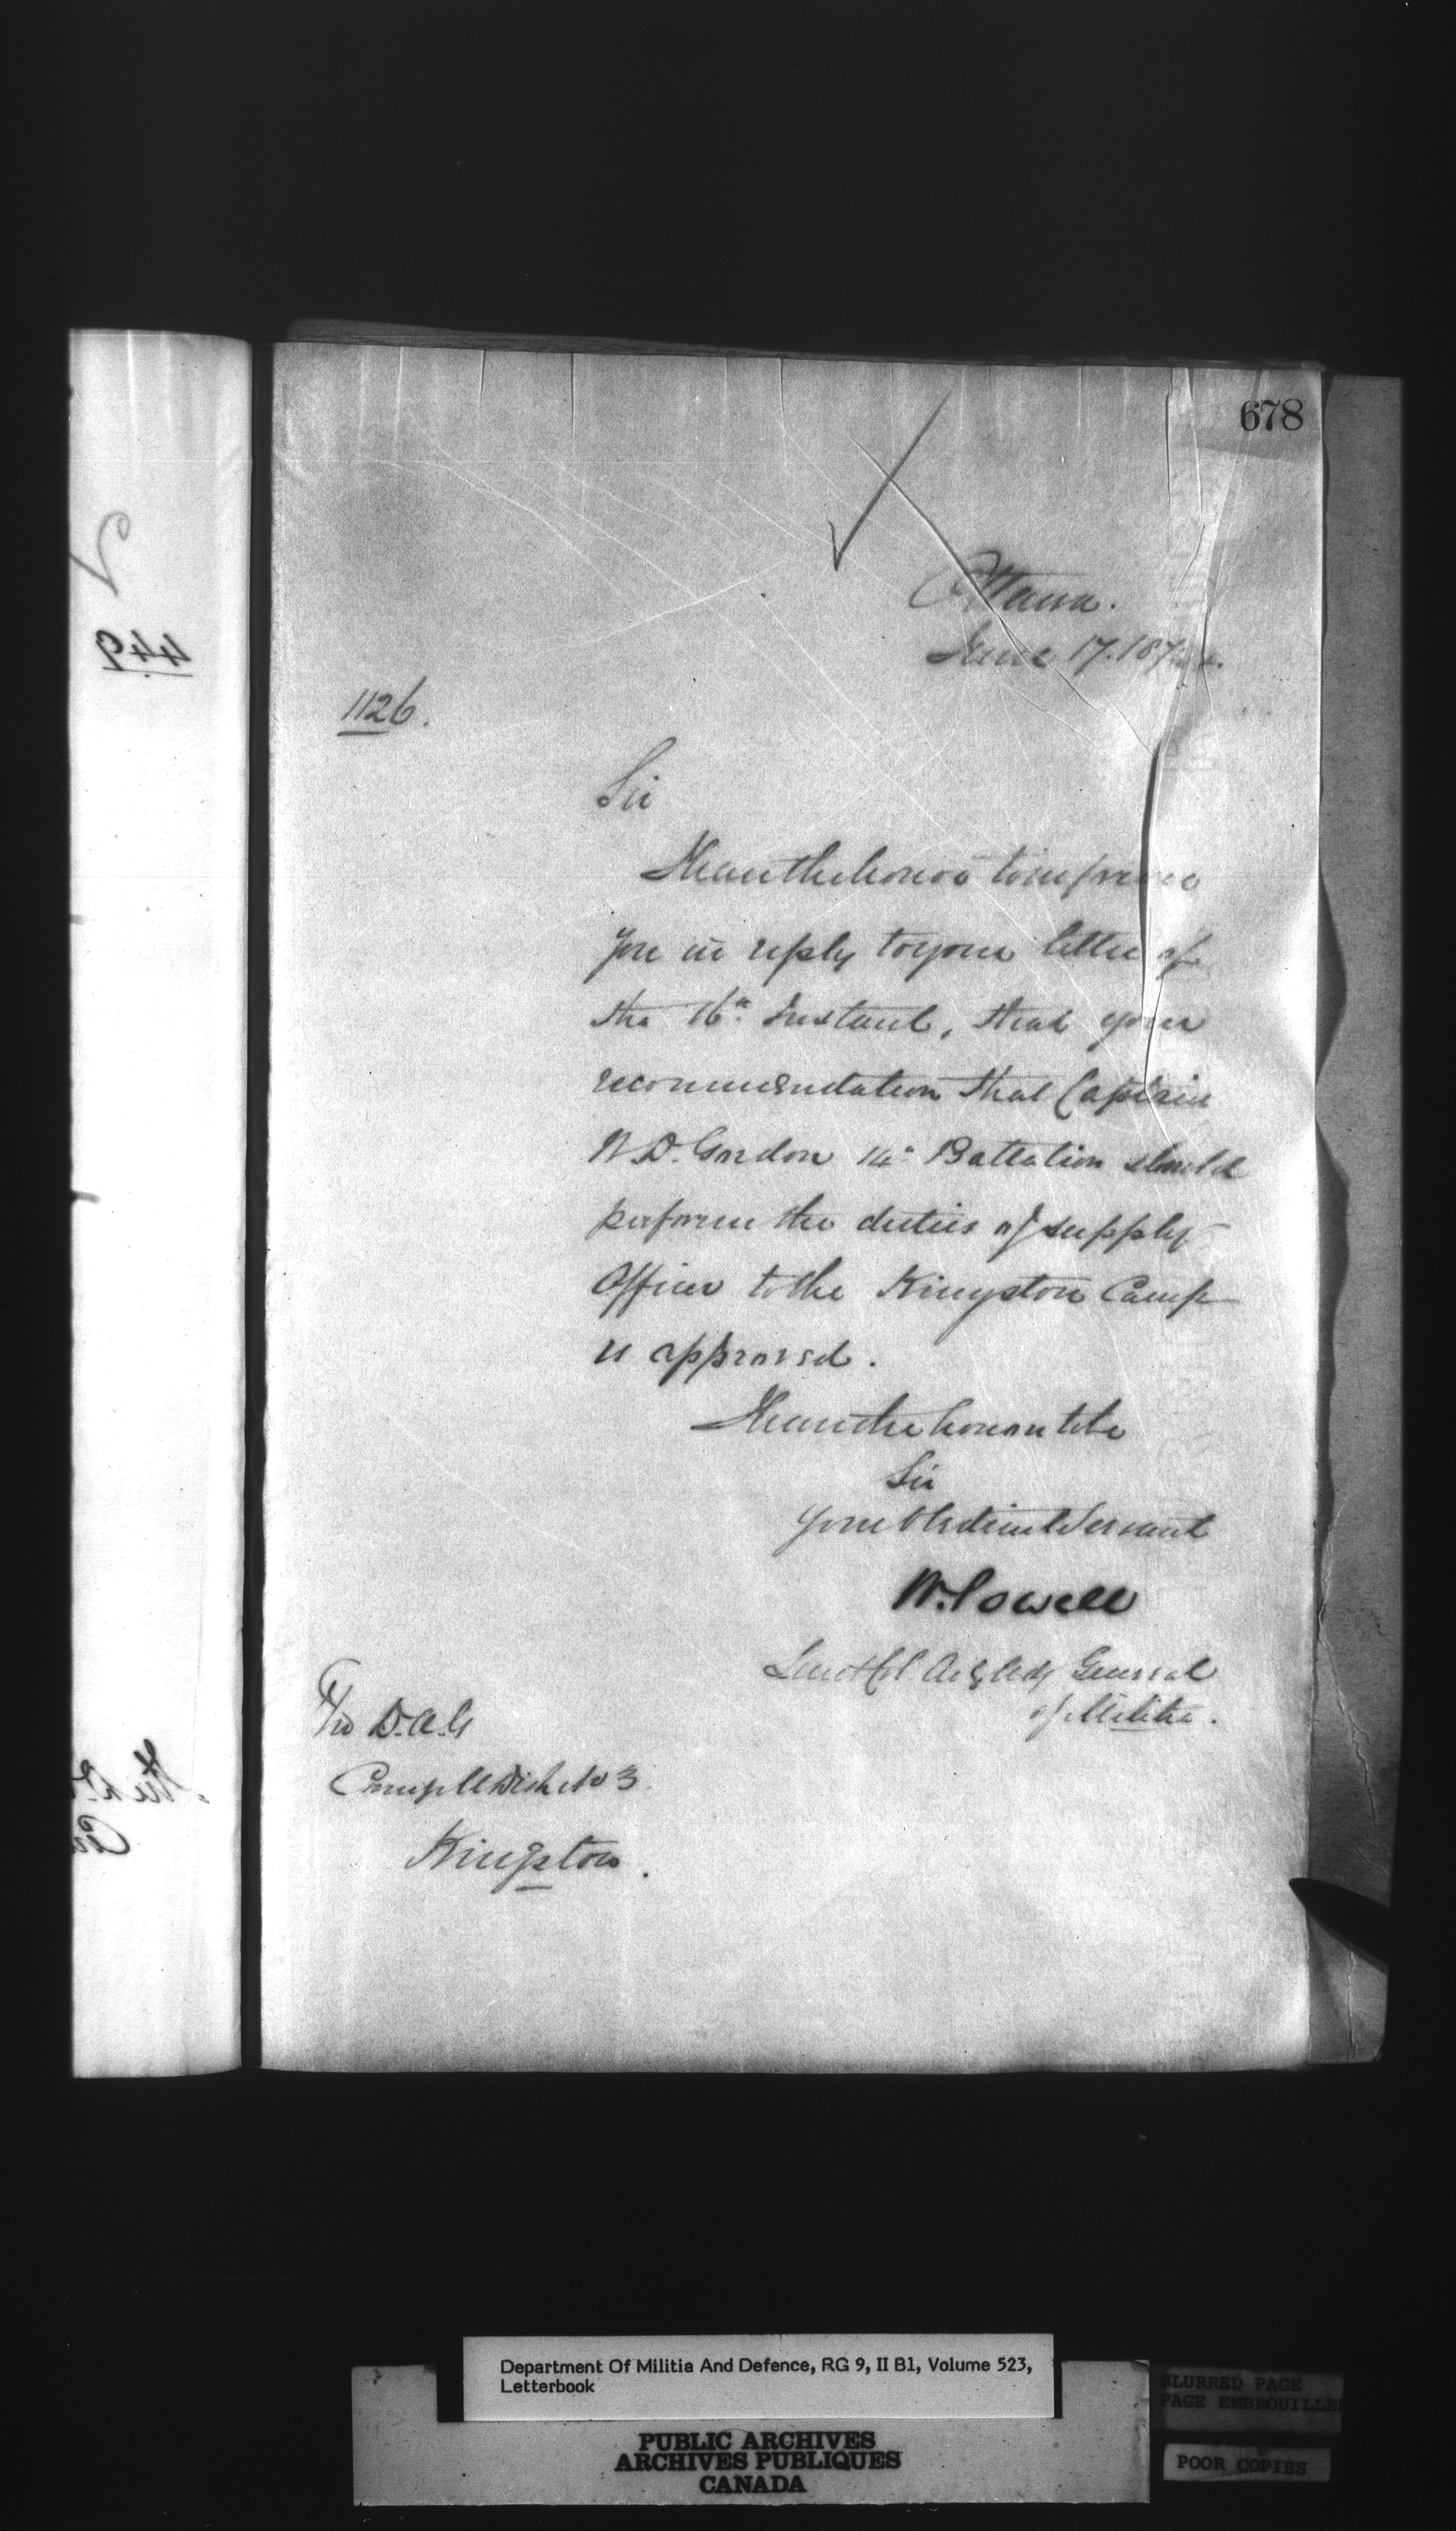 678
Ottawa.
June 17. 187
1126.
Sir
I have the honor to inform
you in reply to your letter of
the 16th Instant, that your
recommendation that Captain
W.D. Gordon 14th Battalion should
perform the duties of supply
Officer to the Kingston Camp
is approved.
I have the honor to be
Sir
Your Obedient Servant
W. Powell
Lieut Col Actg Adj General
of Militia.
The D.A.G
Comg M Dist No 3
Kingston.
449
Department Of Militia And Defence, RG 9, II B1, Volume 523,
Letterbook
PUBLIC ARCHIVES
ARCHIVES PUBLIQUES
CANADA
BLURRED PAGE
PAGE EMBROUILLE
POOR COPIES